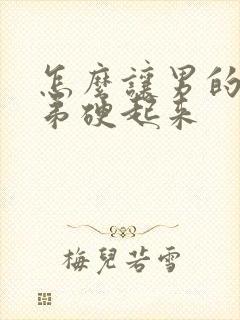 怎麼讓男的
弟硬起来
梅兒若雪